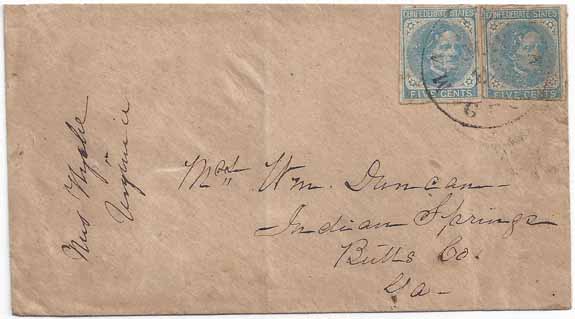 CONFEDERATE STATES
CONFEDERATE STATES
FIVE CENTS
FIVE CENTS
Mrs Wm. Duncan
Indian Springs
Butts Co.
Ga
Virginia